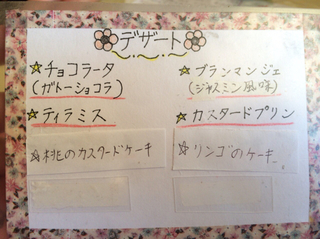 デザート
☆チョコラータ
(ガトーショコラ)
☆ティラミス
☆桃のカスタードケーキ
☆ブランマンジェ
(ジャスミン風味)
☆カスタードプリン
☆リンゴのケーキ